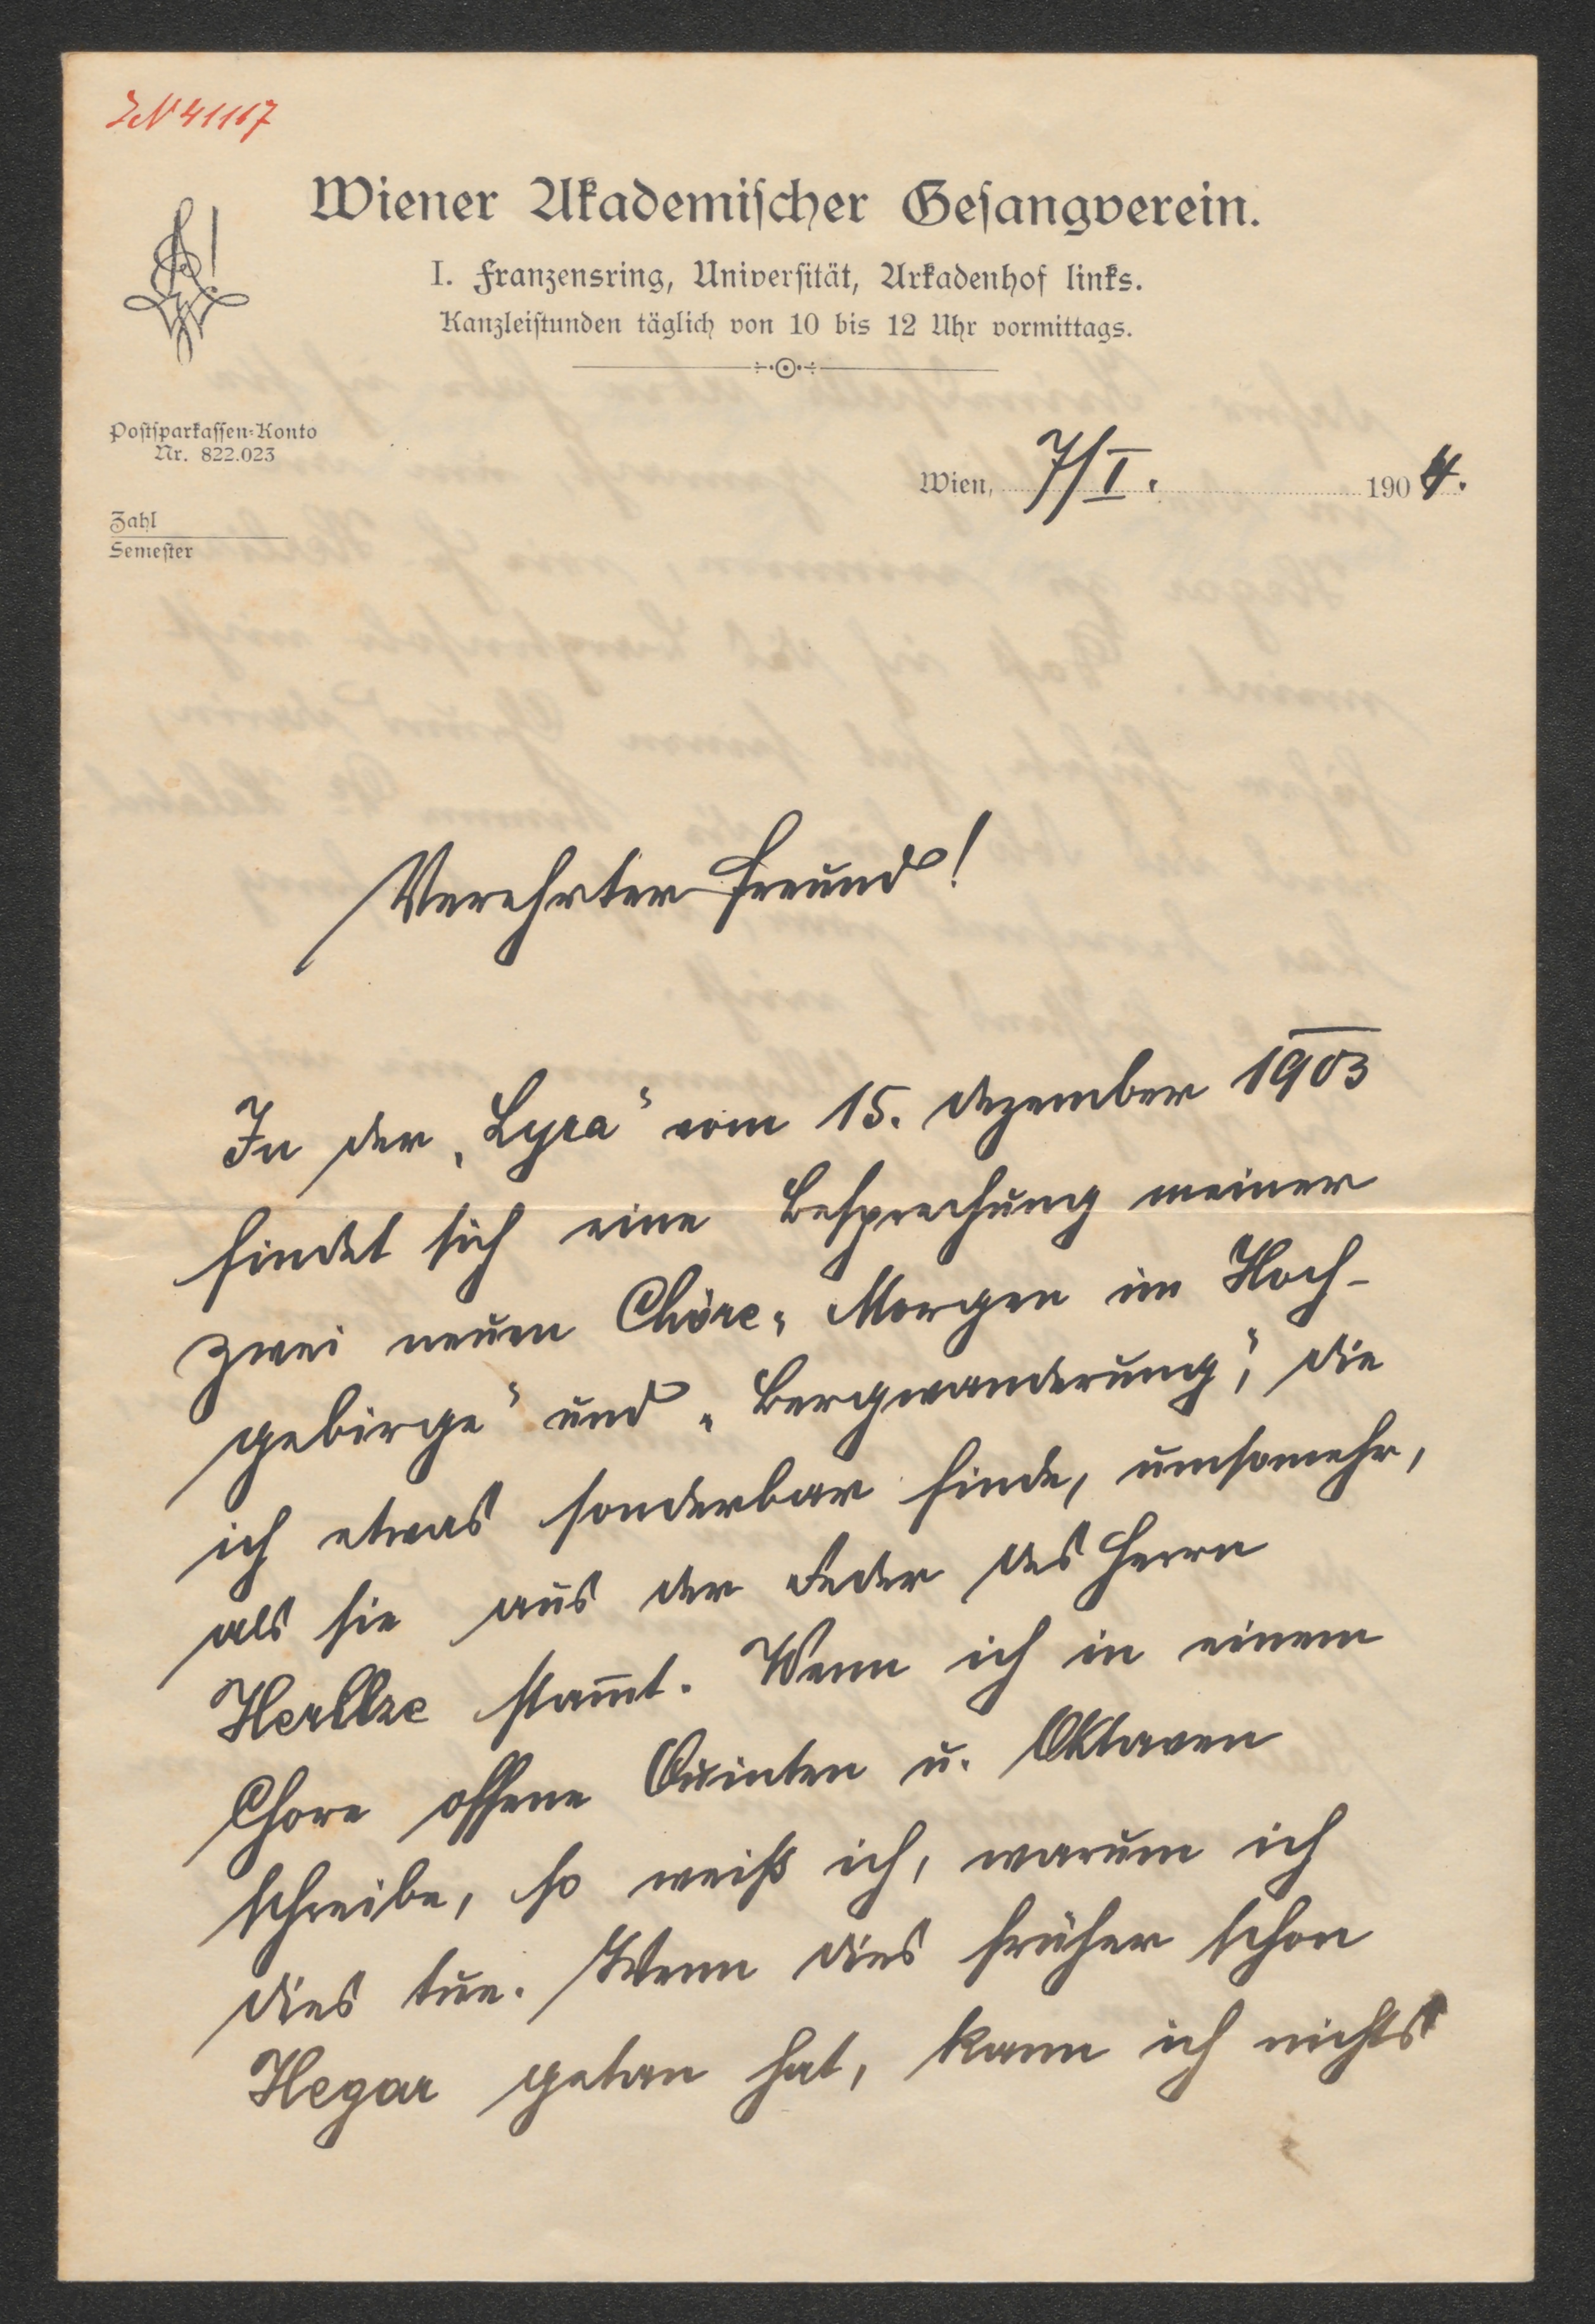 ZN 41117
Wiener Akademischer Gesangverein.
I. Franzensring, Universität, Arkadenhof links.
Kanzleistunden täglich von 10 bis 12 Uhr vormittags.
Postsparkassen-Konto
Nr. 822.023
Wien, 7/I. 1904.
Zahl
Semester
Verehrter Freund!
In der „Lyra“ vom 15. Dezember 1903
findet sich eine Besprechung meiner
zwei neuen Chöre „Morgen im Hoch-
gebirge“ und „Bergwanderung“, die
ich etwas sonderbar finde, umsomehr,
als sie aus der Feder des Herrn
stam̅t. Wenn ich in einem
Chore offene Quinten u. Oktaven
schreibe, so weiß ich, warum ich
dies tue. Wenn dies früher schon
Hegar getan hat, kann ich nichts